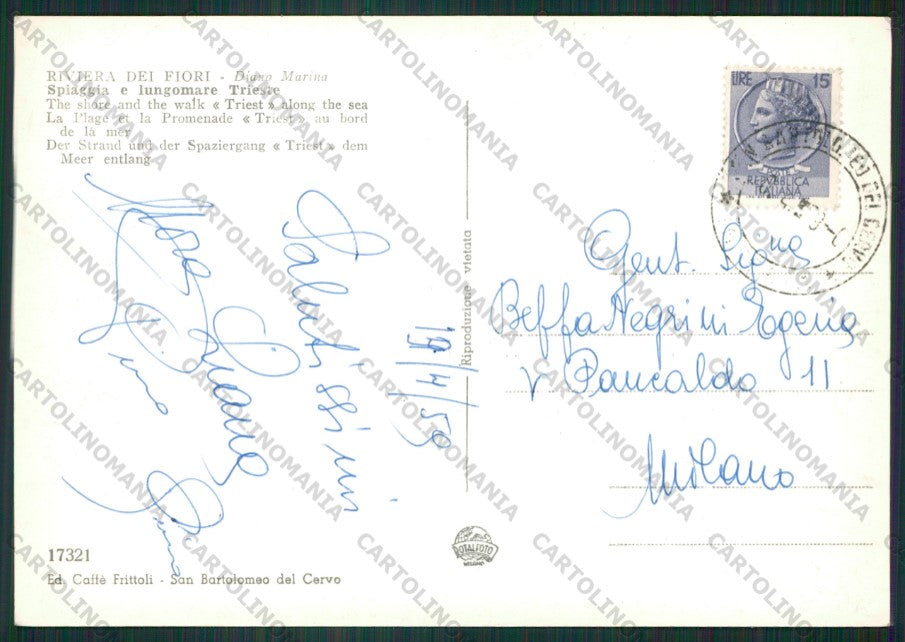 RIVIERA DEI FIORI - Diano Marina
Spiaggia e lungomare Trieste
The shore and the walk « Triest » along the sea
La Plage et la Promenade « Triest » au bord
de là mer
Der Strand und der Spaziergang « Triest » dem
Meer entlang
Salutissimi
19/4/59
Riproduzione vietata
LIRE 15
POSTE
REPVBBLICA
ITALIANA
Gent. Sig.na
Beffa Negrini Egenia
v Pancaldo 11
Milano
17321
Ed. Caffè Frittoli - San Bartolomeo del Cervo
TOTALFOTO
MILANO
CARTOLINOMANIA